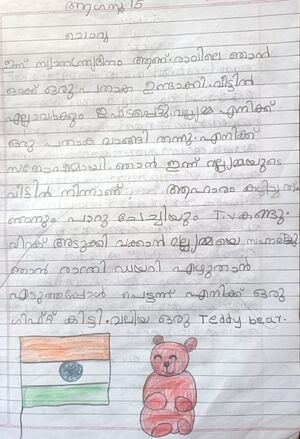 ആഗസ്റ്റ് 15
ചൊവ്വ
ഇന്ന് സ്വാതന്ത്ര്യദിനം ആണ്. രാവിലെ ഞാൻ
ഒരു പതാക ഉണ്ടാക്കി. വീട്ടിൽ
എല്ലാവർക്കും ഇഷ്ടപ്പെട്ടു. വല്യമ്മ എനിക്ക്
ഒരു പതാക വാങ്ങി തന്നു. എനിക്ക്
സന്തോഷമായി. ഞാൻ ഇന്ന് വല്യമ്മയുടെ
വീട്ടിൽ നിന്നാണ് ആഹാരം കഴിച്ചത്.
ഞാനും പാറു ചേച്ചിയും T.V കണ്ടു.
വിറക് അടുക്കി വക്കാൻ വല്യമ്മയെ സഹായിച്ചു
ഞാൻ രാത്രി ഡയറി എഴുതാൻ
എടുത്തപ്പോൾ പെട്ടന്ന് എനിക്ക് ഒരു
ഗിഫ്റ്റ് കിട്ടി. വലിയ ഒരു Teddy bear.